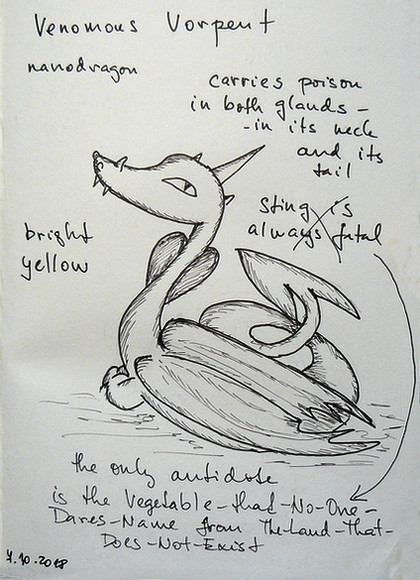 Venomous Vorpent
nanodragon
carries poison
in both glands –
- in its neck
and its
tail
sting is
always fatal
bright
yellow
the only antidote
is the Vegetable-that-No-One-
Dares-Name from The-Land-That-
Does-Not-Exist
4.10.2018